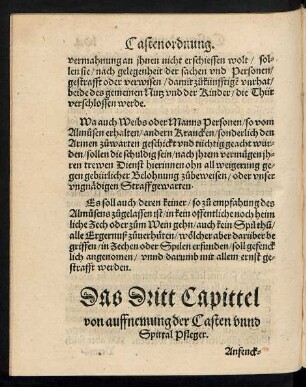 Castenordnung.
vermahnung an jhnen nicht erschiessen wolt / sol-
len sie / nach gelegenheit der sachen vnd Personen /
gestrafft oder verwisen / damit zůkünfftige vnrhat /
beide des gemeinen Nutz vnd der Kinder / die Thür
verschlossen werde.
Wa auch Weibs oder Manns Personen / so vom
Almůsen erhalten / andern Krancken / sonderlich den
Armen zůwarten geschickt vnd tüchtig geacht wur-
den / sollen die schuldig sein / nach jhrem vermügen jh-
ren trewen Dienst hierinnen ohn all weigerung ge-
gen gebürlicher Belohnung zůbeweisen / oder vnser
vngnädigen Straff gewarten.
Es soll auch deren keiner / so zů empfahung des
Almůsens zůgelassen ist / in kein offentliche noch heim
liche Zech oder zům Wein gehn / auch kein Spil thů /
alle Ergernuß zůuerhüten / wölcher aber darüber be
griffen / in Zechen oder Spilen erfunden / soll gefenck
lich angenomen / vnnd darumb mit allem ernst ge-
strafft werden.
Das Dritt Capittel
von auffnemung der Casten vnnd
Spittal Pfleger.
Anfenck-